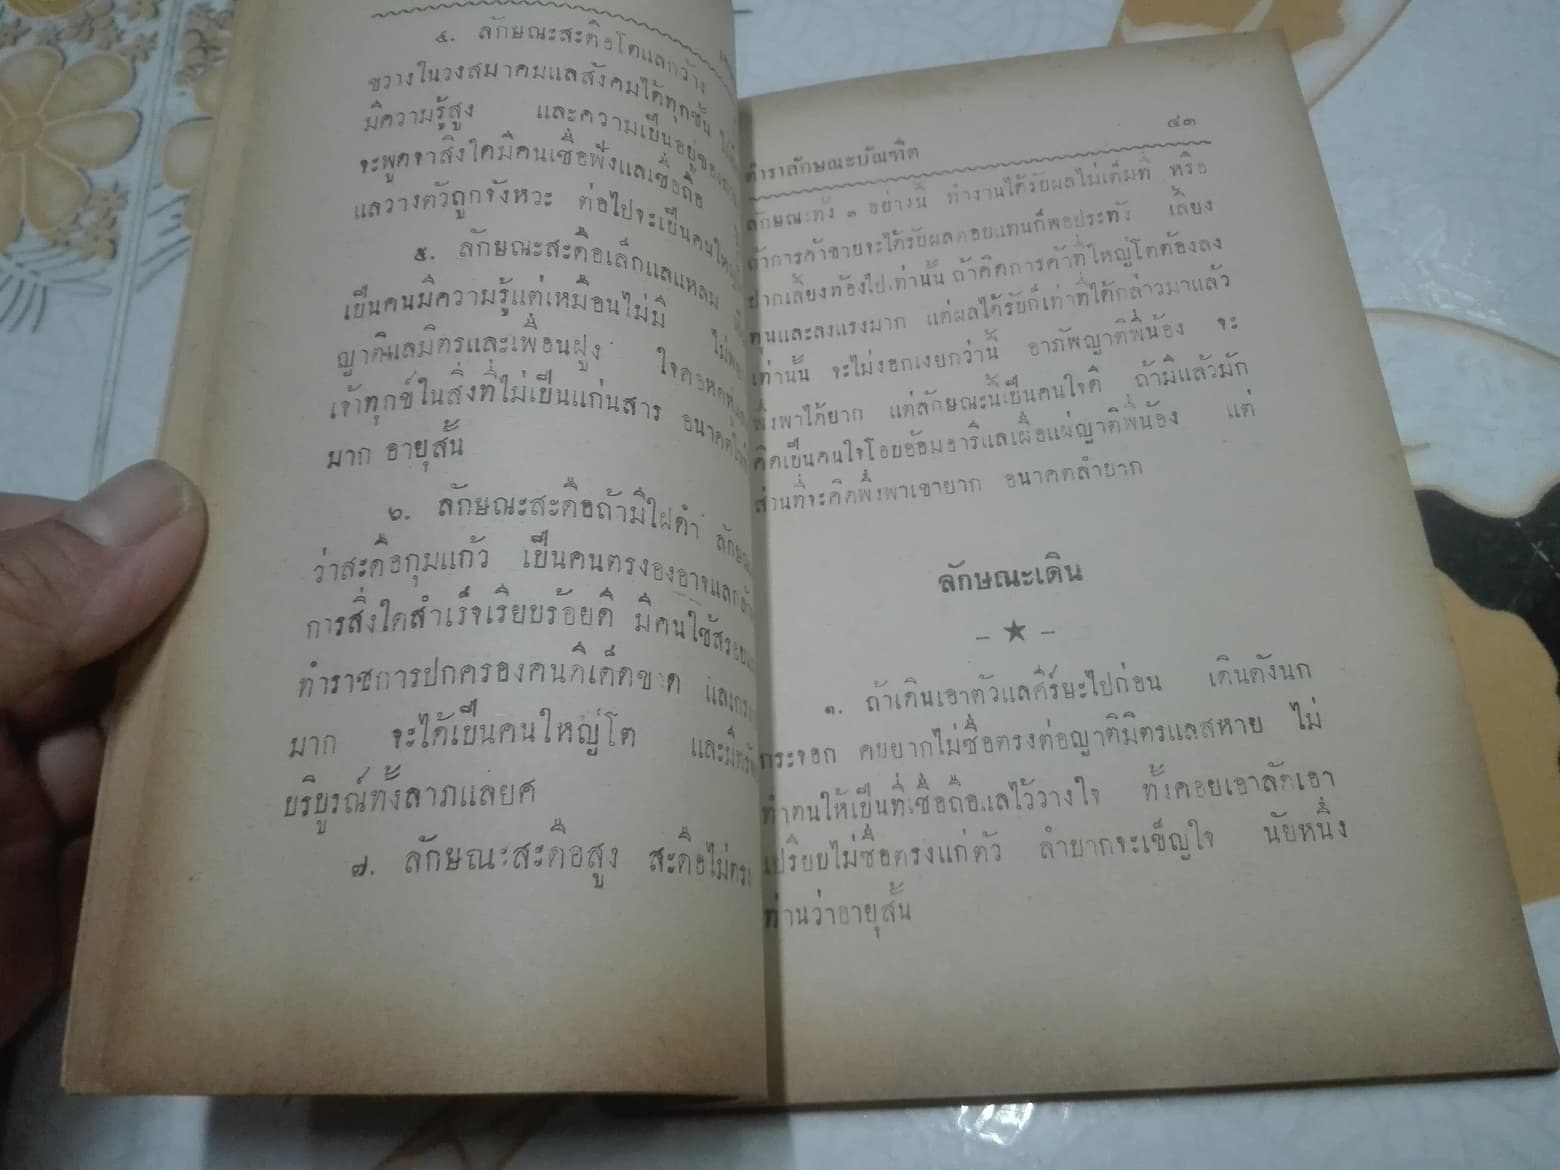 ๔. ลักษณะสะดือโตแลกว้าง
ขวางในวงสมาคมแลสังคมได้ทุกชั้น
มีความรู้สูง และความเป็นอยู่ของ
จะพูดจาสิ่งใดมีคนเชื่อฟังแลเชื่อถือ
แลวางตัวถูกจังหวะ ต่อไปจะเป็นคนใหญ่
๕. ลักษณะสะดือเล็กแลแหลม
เป็นคนมีความรู้แต่เหมือนไม่มี
ญาติแลมิตรและเพื่อนฝูง ใจคอหดหู่
เจ้าทุกข์ในสิ่งที่ไม่เป็นแก่นสาร อนาคต
มาก อายุสั้น
๖. ลักษณะสะดือถ้ามีไฝดำ
ว่าสะดือกุมแก้ว เป็นคนตรงองอาจแลกล้า
การสิ่งใดสำเร็จเรียบร้อยดี มีคนใช้สรอย
ทำราชการปกครองคนดีเด็ดขาด
มาก จะได้เป็นคนใหญ่โต และมีทรัพ
บริบูรณ์ทั้งลาภแลยศ
๗. ลักษณะสะดือสูง สะดือไม่ตรง
ตำราลักษณะบัณฑิต ๔๓
ลักษณะทั้ง ๓ อย่างนี้ ทำงานได้รับผลไม่เต็มที่ หรือ
ถ้าการค้าขายจะได้รับผลตอบแทนก็พอประทัง เลี้ยง
ปากเลี้ยงท้องไปเท่านั้น ถ้าคิดการค้าที่ใหญ่โตต้องลง
ทุนและลงแรงมาก แต่ผลได้รับก็เท่าที่ได้กล่าวมาแล้ว
เท่านั้น จะไม่งอกเงยกว่านี้ อาภัพญาติพี่น้อง จะ
พึ่งพาได้ยาก แต่ลักษณะนี้เป็นคนใจดี ถ้ามีแล้วมัก
คิดเป็นคนใจโอบอ้อมอารีแลเผื่อแผ่ญาติพี่น้อง แต่
ส่วนที่จะคิดพึ่งพาเขายาก อนาคตลำบาก
ลักษณะเดิน
– ★ –
๑. ถ้าเดินเอาตัวแลศีร์ษะไปก่อน เดินดังนก
กระจอก คบยากไม่ซื่อตรงต่อญาติมิตรแลสหาย ไม่
ทำตนให้เป็นที่เชื่อถือแลไว้วางใจ ทั้งคอยเอาลัดเอา
เปรียบไม่ซื่อตรงแก่ตัว ลำบากจะเข็ญใจ นัยหนึ่ง
ท่านว่าอายุสั้น